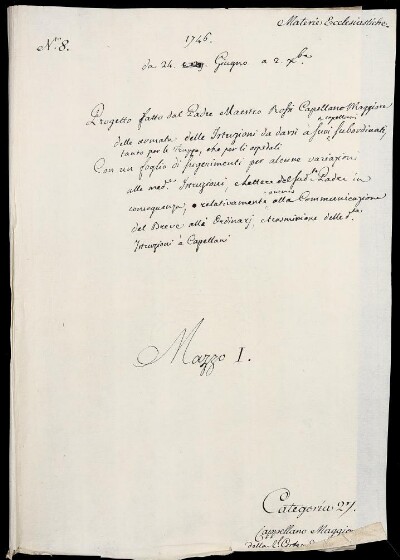 Materie Ecclesiastiche.
N.ro 8.
1746.
da 24. Giugno a 2. Xbre
Progetto fatto dal Padre Maestro Rossi Capellano Maggiore
delle armate delle Istruzioni da darsi a suoi capellani subordinati,
tanto per le Truppe, che per li ospedali
Con un foglio di sugerimenti per alcune variazioni
alle med.me Istruzioni, e lettere del sud.to Padre in
conseguenza, e relativamente alla Communicazione
del Breve alli Ordinarj, e trasmisione delle d.te
Istruzioni à Capellani
Mazzo I.
Categoria 27.
Cappellano Maggio
della